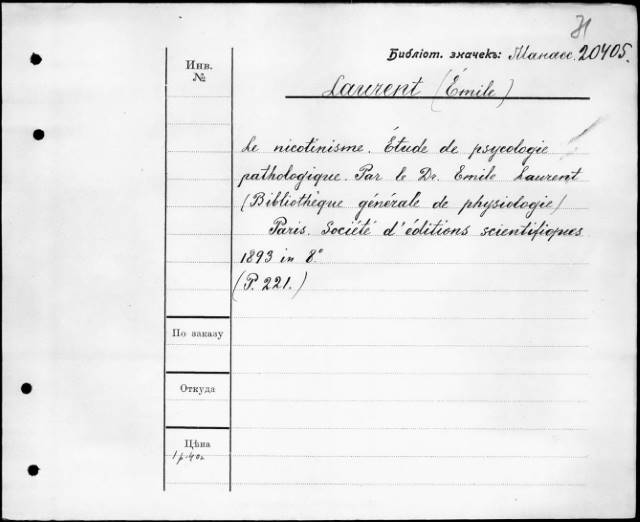 Библіот. значекъ: Манасс. 20405.
Инв.
№
Laurent (Émile)
Le nicotinisme. Étude de psycologie
pathologique. Par le Dr. Emile Laurent
(Bibliothèque générale de physiologie)
Paris. Société d'éditions scientifiques
1893 in 8°
(P. 221.)
По заказу
Откуда
Цѣна
1 р. 40 к.